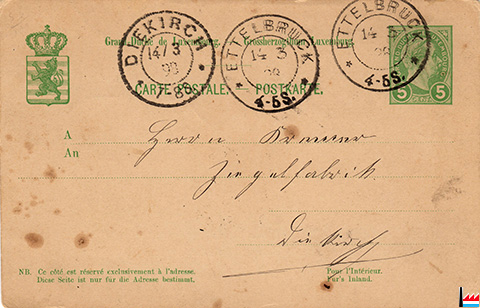 Grand-Duché de Luxembourg. Grossherzogthum Luxemburg.
DIEKIRCH
14/3
93
7-8S
ETTELBRUCK
14 3
98
4-5S.
ETTELBRUCK
14 3
98
4-5S.
5 5
CARTE POSTALE. POSTKARTE.
A
An
Herrn Kremer
Ziegelfabrik
Diekirch
NB. Ce côté est réservé exclusivement à l'adresse.
Diese Seite ist nur für die Adresse bestimmt.
Pour l'Intérieur.
Für's Inland.